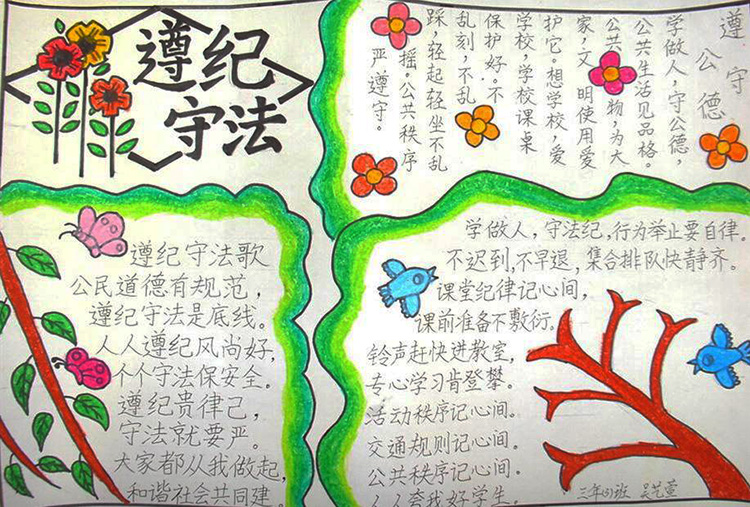 遵纪
守法
遵守
公德
学做人，守公德，
公共生活见品格。
公共物，为大
家，文明使用爱
护它。想学校，爱
学校，学校课桌
保护好。不
乱刻，不乱
踩，轻起轻坐不乱
摇。公共秩序
严遵守。
遵纪守法歌
公民道德有规范，
遵纪守法是底线。
人人遵纪风尚好，
个个守法保安全。
遵纪贵律己，
守法就要严。
大家都从我做起，
和谐社会共同建。
学做人，守法纪，行为举止要自律。
不迟到，不早退，集合排队快静齐。
课堂纪律记心间，
课前准备不敷衍。
铃声赶快进教室，
专心学习肯登攀。
活动秩序记心间。
交通规则记心间。
公共秩序记心间。
人人夸我好学生。
三年班 吴艺萱